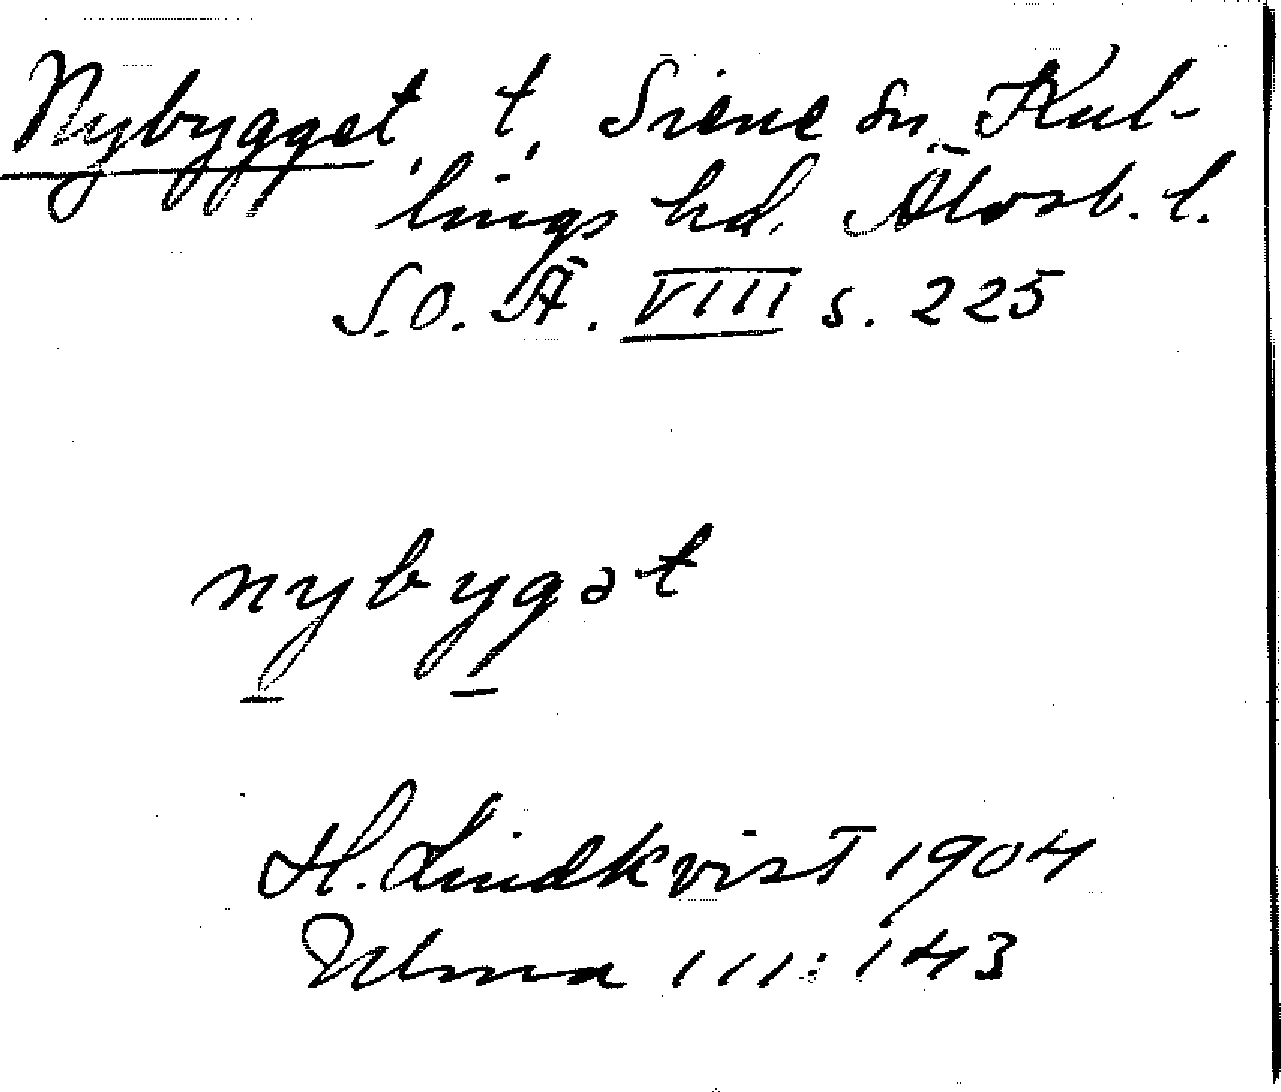 Nybygget, t, Siene sn, Kul-
lings hd. Älvsb. l.
S.O.Ä. VIII s. 225
nybygət
H. Lindkvist 1904
Ulma 111:143